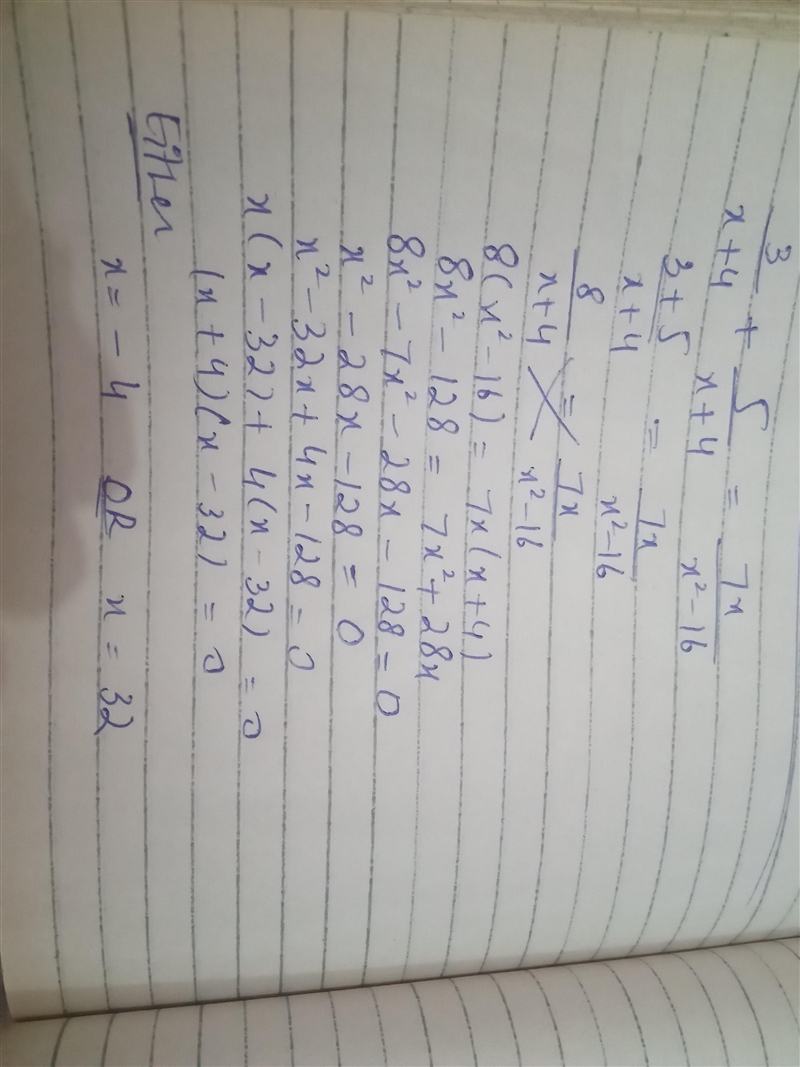 3/(x+4) + 5/(x+4) = 7x/(x²-16)
(3+5)/(x+4) = 7x/(x²-16)
8/(x+4) = 7x/(x²-16)
8(x²-16) = 7x(x+4)
8x² - 128 = 7x² + 28x
8x² - 7x² - 28x - 128 = 0
x² - 28x - 128 = 0
x² - 32x + 4x - 128 = 0
x(x - 32) + 4(x - 32) = 0
(x + 4)(x - 32) = 0
Either
x = - 4 OR x = 32